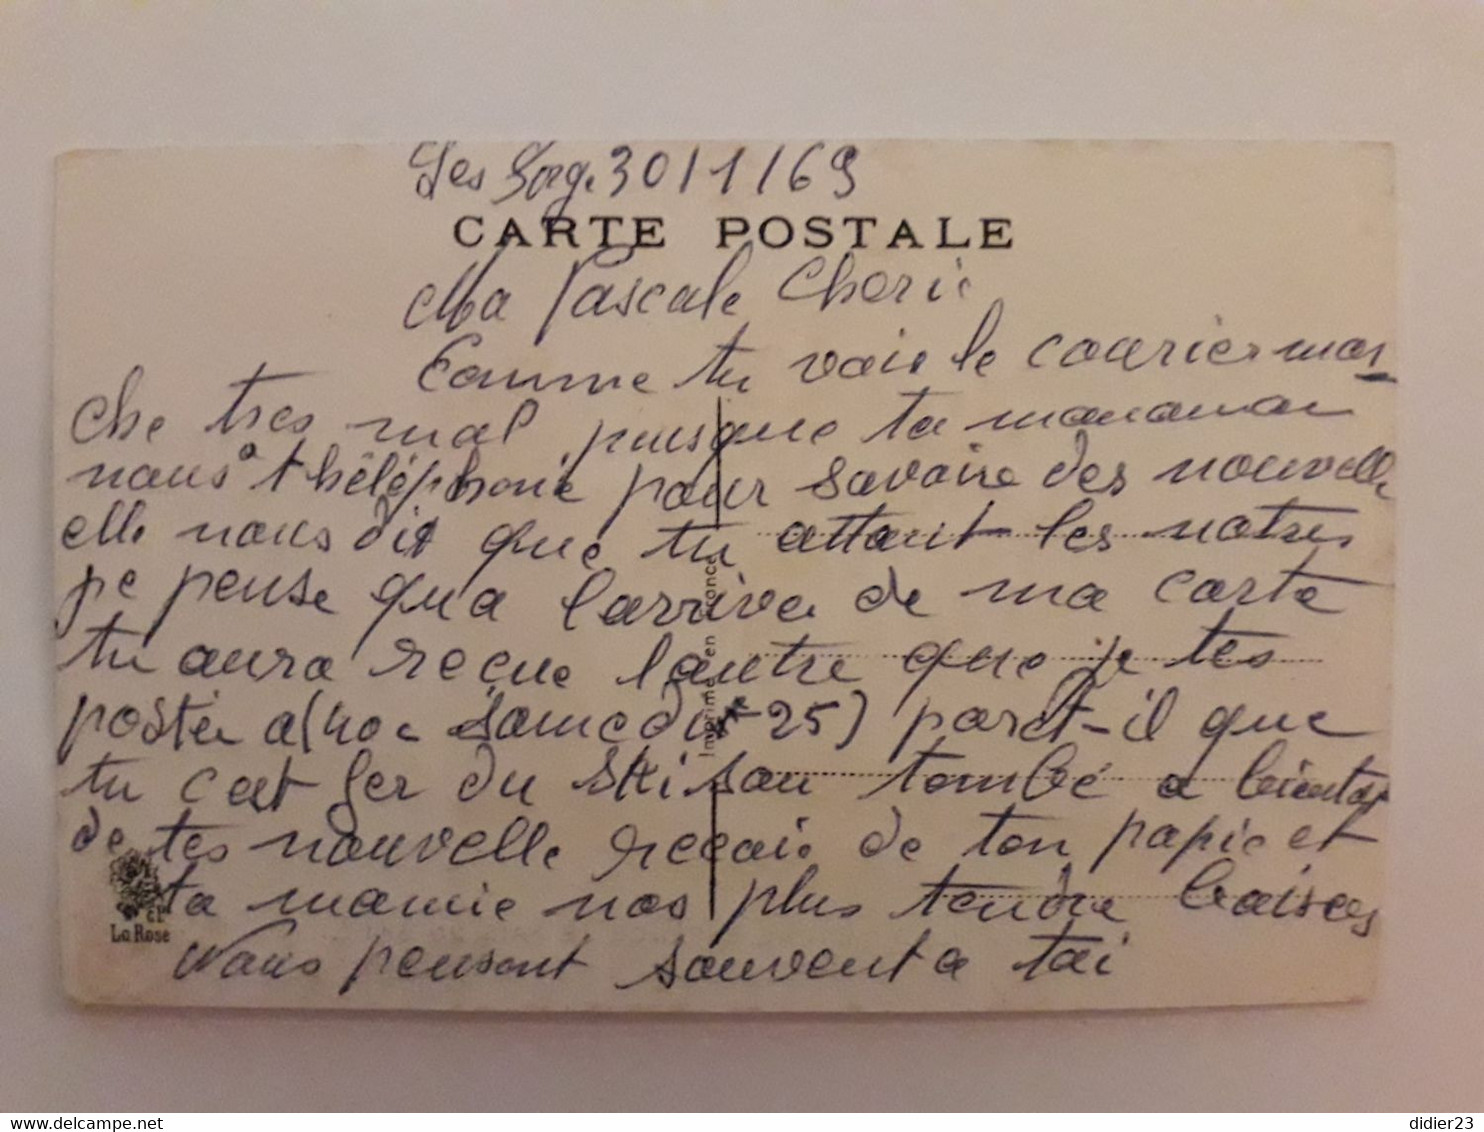 Les Sorg. 30/1/69
CARTE POSTALE
Ma Pascale Cherie
Comme tu vois le courrier mar
che tres mal puisque ta mamman
nous a théléphonié pour savoire des nouvelle
elle nous dit que tu attant les notres
je pense qu a l'arrive de ma carte
tu aura reçue l'autre que je tes
postée a Samedi 25) paret-il que
tu c'est fer du Ski san tombé a bientot
de tes nouvelle reçois de ton papie et
ta mamie nos plus tendre baisers
Nous pensont souvent a toi
Imprimé en France
La Rose
www.delcampe.net
didier23